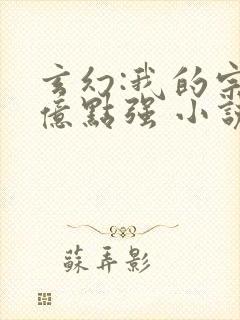 玄幻:我的宗
億點強 小說
蘇弄影